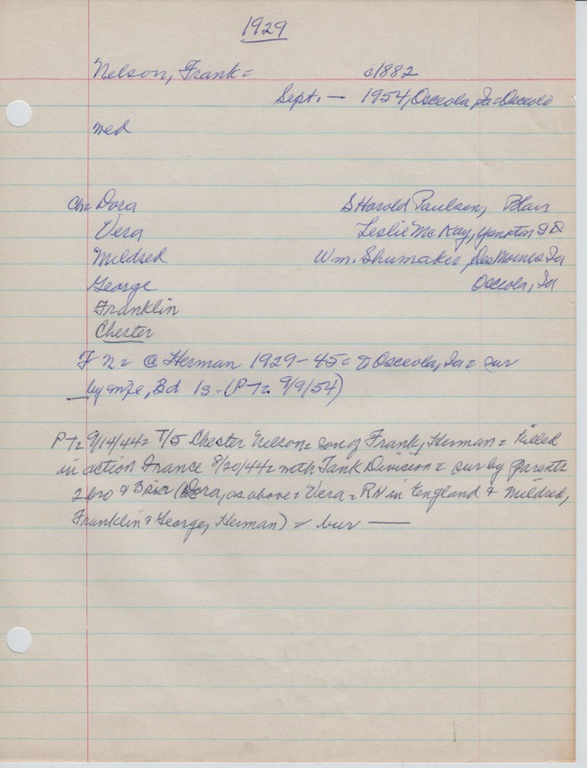 1929
Nelson, Frank = c1882
Sept. — 1954, Osceola, Ia = Osceola
med
Ch = Dora S Harold Paulsen, Blair
Vera Leslie McKay, Yankton SD
Mildred Wm. Shumaker, Des Moines Ia
George Osceola, Ia
Franklin
Chester
F N = @ Herman 1929-45 = to Osceola, Ia = sur
by wife, 3d 1s. (P-T = 9/9/54)
P-T = 9/14/44 = T/5 Chester Nelson = son of Frank, Herman = killed
in action France 8/20/44 = with Tank Division = sur by parents
2 bro & 3 sis (Dora, as above = Vera = RN in England & Mildred,
Franklin & George, Herman) = bur —